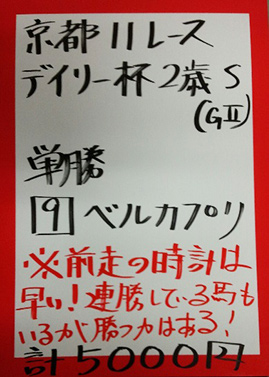 京都11レース
デイリー杯2歳S
(GⅡ)
単勝
9 ベルカプリ
※前走の時計は
早い!連勝している馬も
いるが勝つ力はある!
計5000円